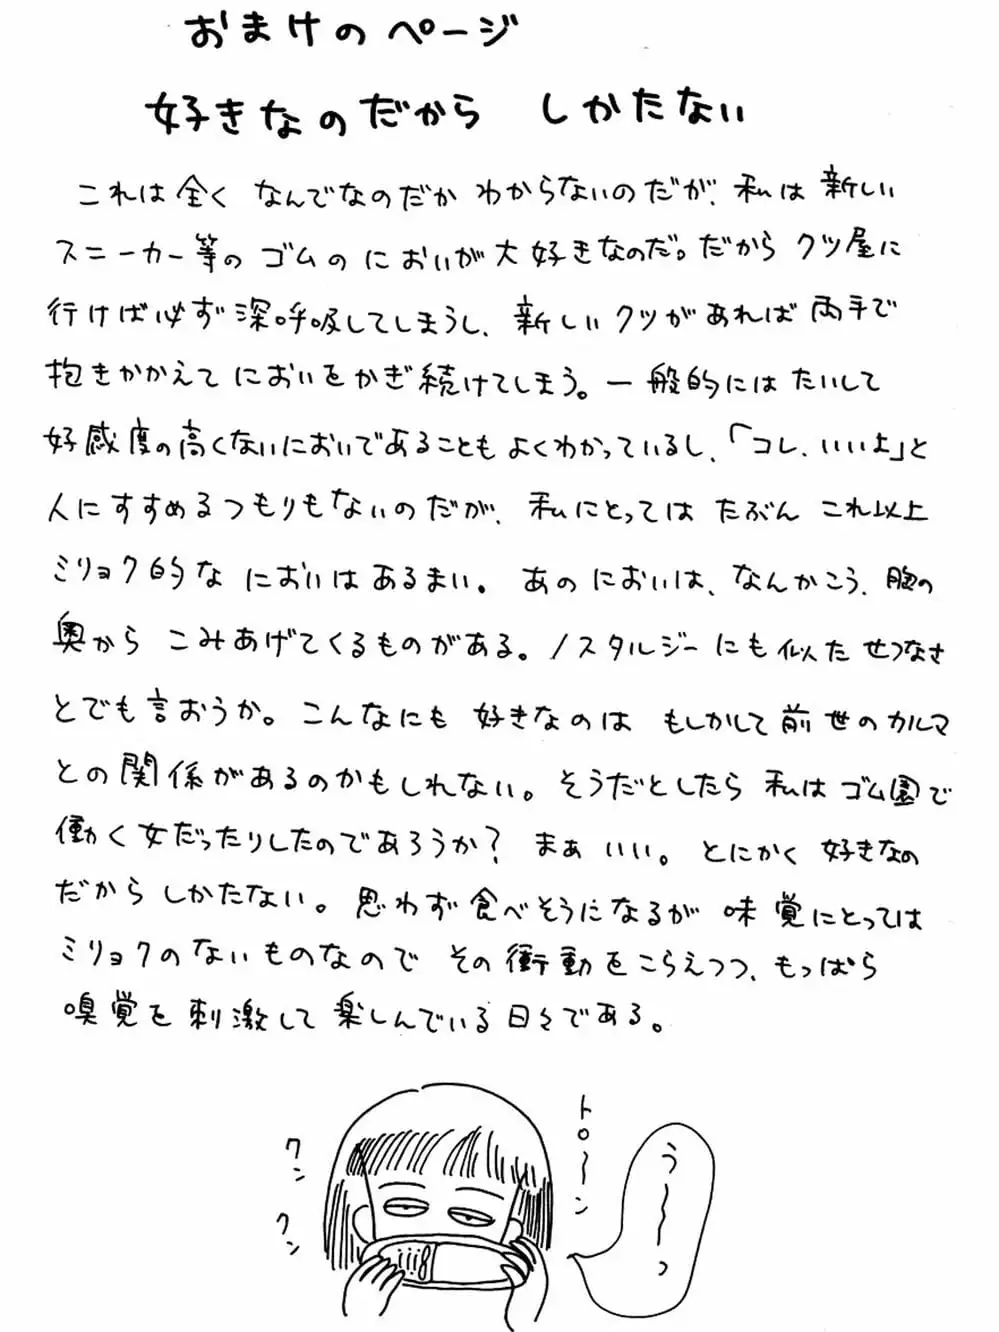 おまけのページ
好きなのだから しかたない
これは全く なんでなのだか わからないのだが、私は 新しい
スニーカー等の ゴムの においが大好きなのだ。だから クツ屋に
行けば必ず 深呼吸してしまうし、新しいクツがあれば 両手で
抱きかかえて においをかぎ続けてしまう。一般的には たいして
好感度の高くないにおいであることも よくわかっているし、「コレ、いいよ」と
人にすすめるつもりもないのだが、私にとっては たぶん これ以上
ミリョク的な においはあるまい。あの においは、なんかこう、胸の
奥から こみあげてくるものがある。ノスタルジーにも似た せつなさ
とでも言おうか。こんなにも 好きなのは もしかして前世のカルマ
との関係があるのかもしれない。そうだとしたら 私はゴム園で
働く女だったりしたのであろうか？ まぁ いい。とにかく 好きなの
だから しかたない。思わず食べそうになるが 味覚にとっては
ミリョクのないものなので その衝動をこらえつつ、もっぱら
嗅覚を刺激して 楽しんでいる日々である。
トローン
う〜〜っ
クン
クン